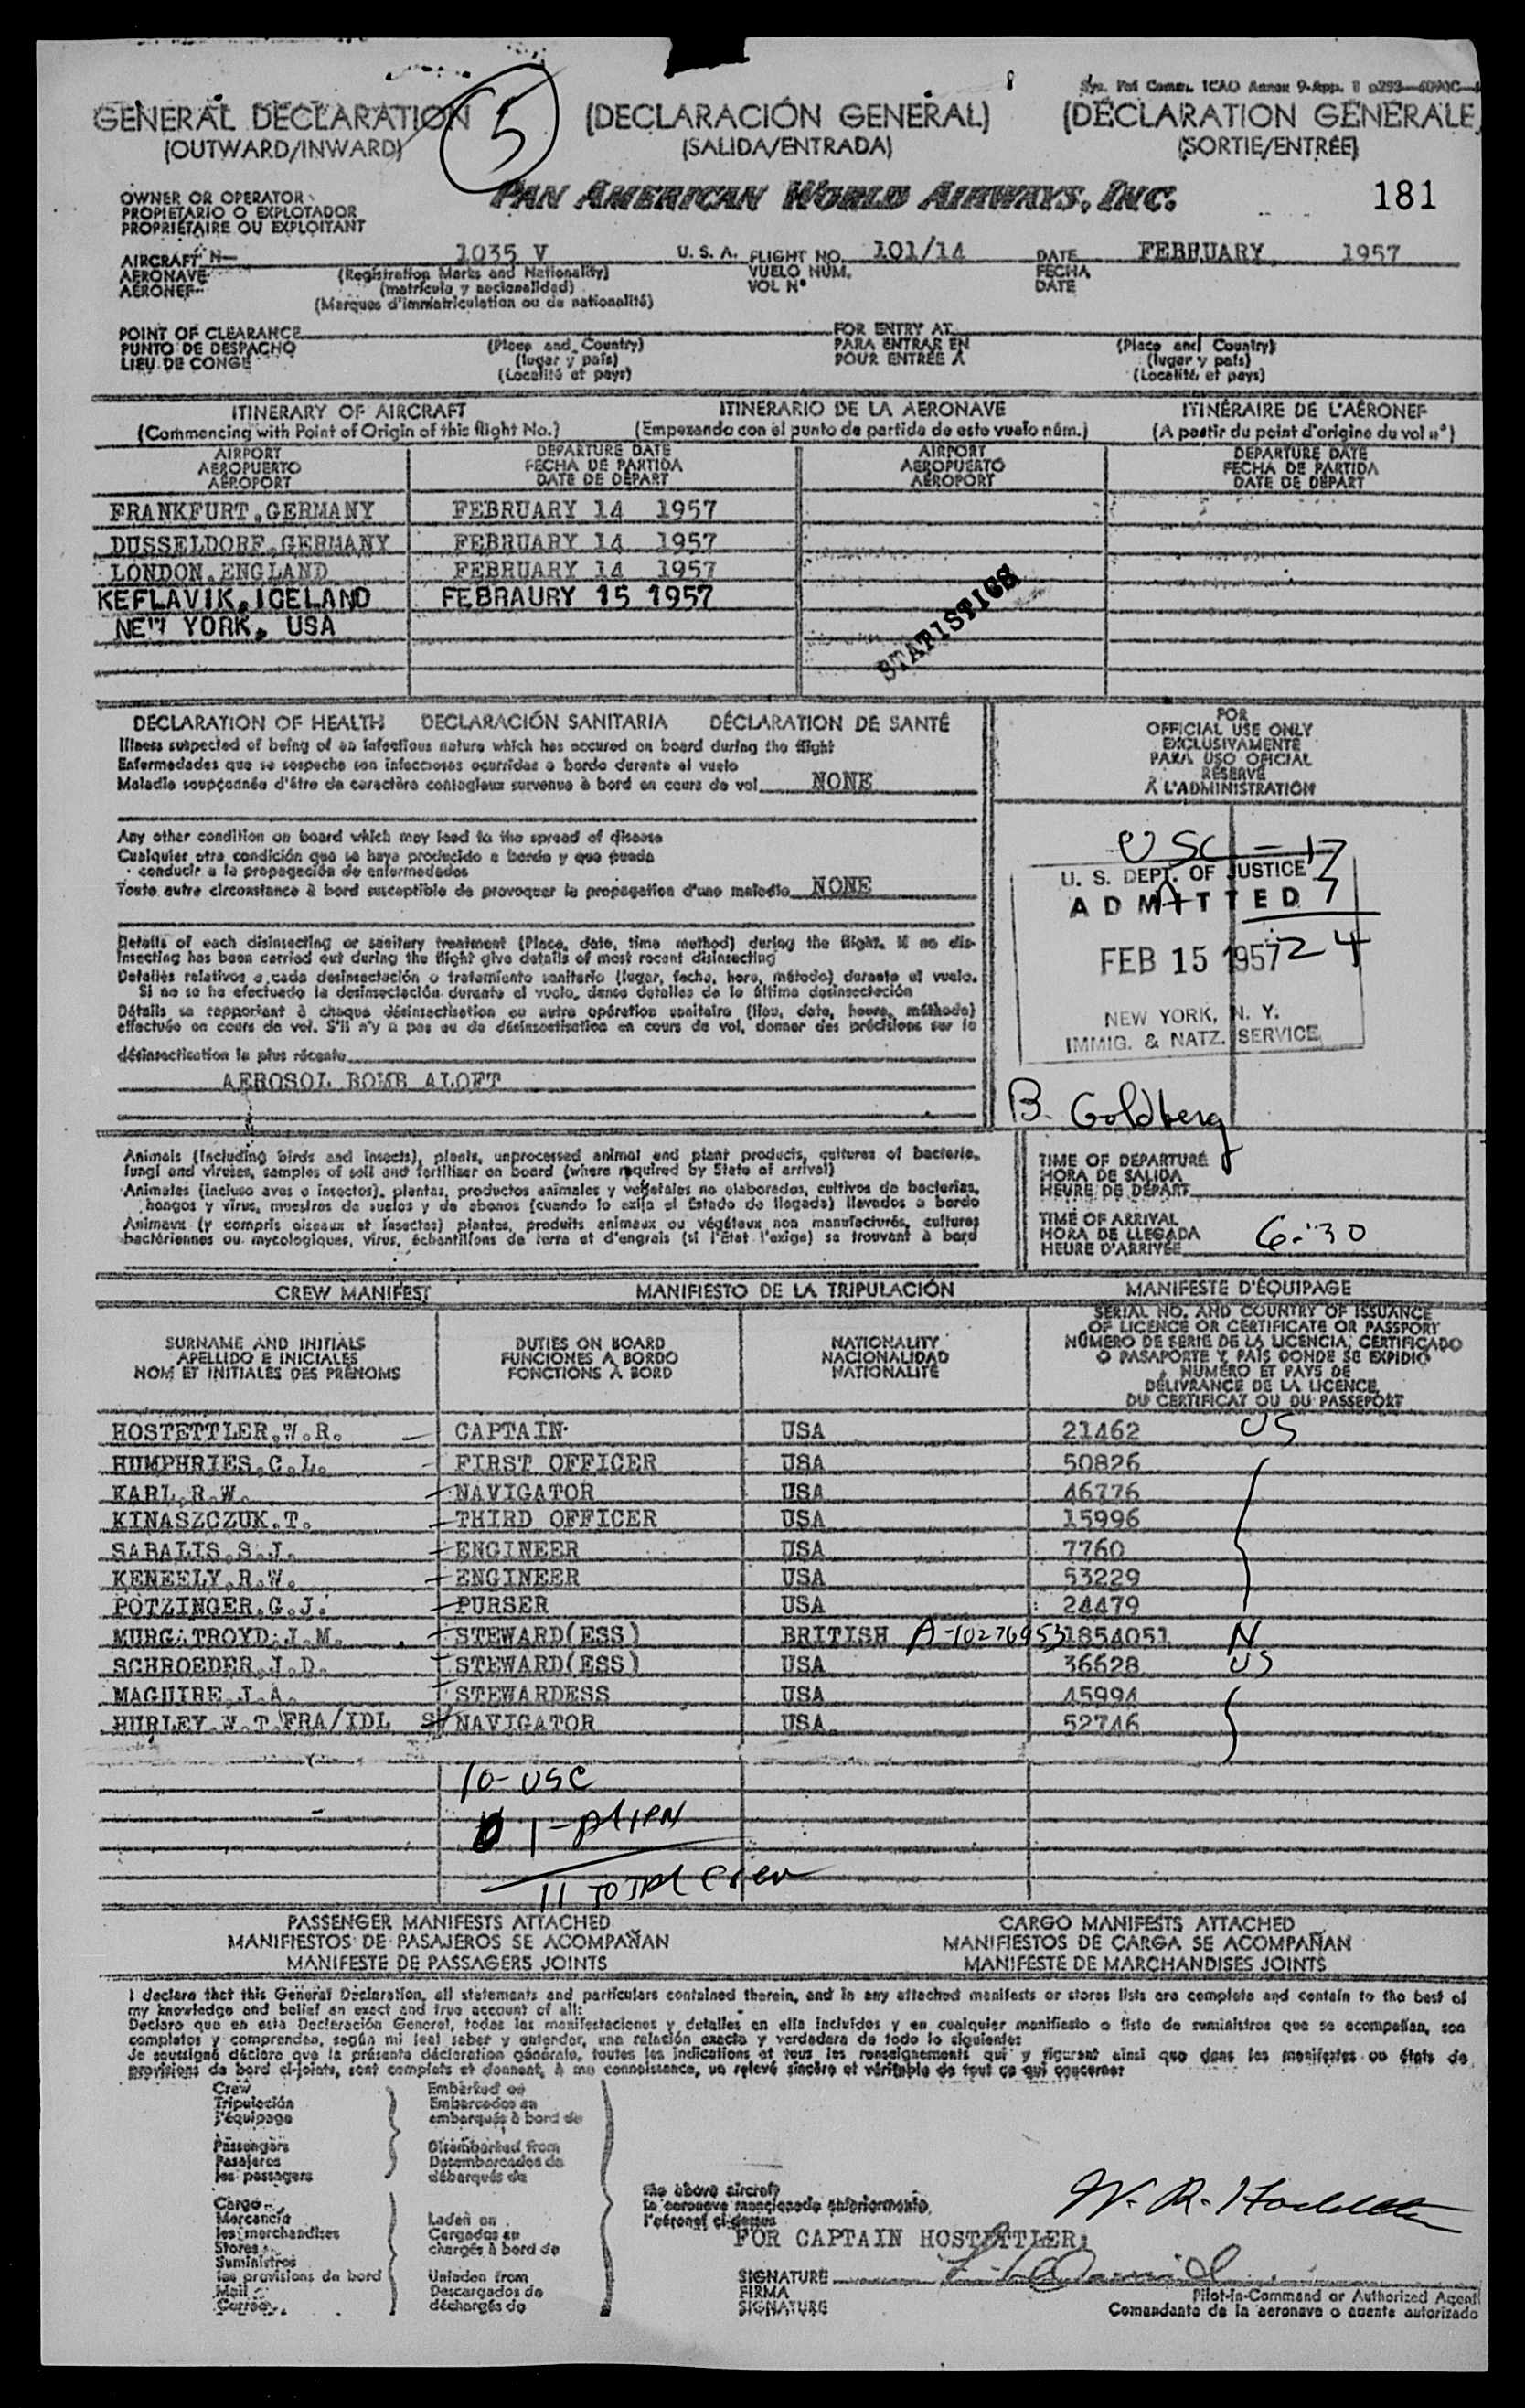 Sys. Pat Comm. ICAO Annex 9-App. 1
GENERAL DECLARATION (DECLARACIÓN GENERAL) (DÉCLARATION GÉNÉRALE)
(OUTWARD/INWARD) (SALIDA/ENTRADA) (SORTIE/ENTRÉE)
5
OWNER OR OPERATOR
PROPIETARIO O EXPLOTADOR
PROPRIÉTAIRE OU EXPLOITANT
PAN AMERICAN WORLD AIRWAYS, INC. 181
AIRCRAFT N- 1035 V U. S. A. FLIGHT NO. 101/14 DATE FEBRUARY 1957
AERONAVE (Registration Marks and Nationality) VUELO NÚM. FECHA
AÉRONEF (matrícula y nacionalidad) VOL Nº DATE
(Marques d'immatriculation ou de nationalité)
POINT OF CLEARANCE FOR ENTRY AT
PUNTO DE DESPACHO (Place and Country) PARA ENTRAR EN (Place and Country)
LIEU DE CONGÉ (lugar y país) POUR ENTRÉE À (lugar y país)
(Localité et pays) (Localité et pays)
ITINERARY OF AIRCRAFT ITINERARIO DE LA AERONAVE ITINÉRAIRE DE L'AÉRONEF
(Commencing with Point of Origin of this flight No.) (Empezando con el punto de partida de este vuelo núm.) (A partir du point d'origine du vol nº)
AIRPORT DEPARTURE DATE AIRPORT DEPARTURE DATE
AEROPUERTO FECHA DE PARTIDA AEROPUERTO FECHA DE PARTIDA
AÉROPORT DATE DE DÉPART AÉROPORT DATE DE DÉPART
FRANKFURT,GERMANY FEBRUARY 14 1957
DUSSELDORF,GERMANY FEBRUARY 14 1957
LONDON,ENGLAND FEBRUARY 14 1957
KEFLAVIK, ICELAND FEBRAURY 15 1957
NEW YORK, USA
STATISTICS
DECLARATION OF HEALTH DECLARACIÓN SANITARIA DÉCLARATION DE SANTÉ
Illness suspected of being of an infectious nature which has occured on board during the flight
Enfermedades que se sospeche son infecciosas ocurridas a bordo durante el vuelo
Maladie soupçonnée d'être de caractère contagieux survenue à bord en cours de vol NONE
Any other condition on board which may lead to the spread of disease
Cualquier otra condición que se haya producido a bordo y que pueda
conducir a la propagación de enfermedades
Toute autre circonstance à bord susceptible de provoquer la propagation d'une maladie NONE
Details of each disinsecting or sanitary treatment (Place, date, time method) during the flight. If no dis-
insecting has been carried out during the flight give details of most recent disinsecting
Detalles relativos a cada desinsectación o tratamiento sanitario (lugar, fecha, hora, método) durante el vuelo.
Si no se ha efectuado la desinsectación durante el vuelo, dense detalles de la última desinsectación
Détails se rapportant à chaque désinsectisation ou autre opération sanitaire (lieu, date, heure, méthode)
effectuée en cours de vol. S'il n'y a pas eu de désinsectisation en cours de vol, donner des précisions sur la
désinsectication la plus récente
AEROSOL BOMB ALOFT
FOR
OFFICIAL USE ONLY
EXCLUSIVAMENTE
PARA USO OFICIAL
RÉSERVÉ
À L'ADMINISTRATION
USC - 17
U. S. DEPT. OF JUSTICE
ADMITTED
7
FEB 15 1957
24
NEW YORK, N. Y.
IMMIG. & NATZ. SERVICE
B. Goldberg
Animals (including birds and insects), plants, unprocessed animal and plant products, cultures of bacteria,
fungi and viruses, samples of soil and fertiliser on board (where required by State of arrival)
Animales (incluso aves o insectos), plantas, productos animales y vegetales no elaborados, cultivos de bacterias,
hongos y virus, muestras de suelos y de abonos (cuando lo exija el Estado de llegada) llevados a bordo
Animaux (y compris oiseaux et insectes) plantes, produits animaux ou végétaux non manufacturés, cultures
bactériennes ou mycologiques, virus, échantillons de terre et d'engrais (si l'État l'exige) se trouvant à bord
TIME OF DEPARTURE
HORA DE SALIDA
HEURE DE DÉPART
TIME OF ARRIVAL
HORA DE LLEGADA 6:30
HEURE D'ARRIVÉE
CREW MANIFEST MANIFIESTO DE LA TRIPULACIÓN MANIFESTE D'ÉQUIPAGE
SURNAME AND INITIALS
APELLIDO E INICIALES
NOM ET INITIALES DES PRÉNOMS
DUTIES ON BOARD
FUNCIONES A BORDO
FONCTIONS À BORD
NATIONALITY
NACIONALIDAD
NATIONALITÉ
SERIAL NO. AND COUNTRY OF ISSUANCE
OF LICENCE OR CERTIFICATE OR PASSPORT
NÚMERO DE SERIE DE LA LICENCIA, CERTIFICADO
O PASAPORTE Y PAÍS DONDE SE EXPIDIÓ
NUMÉRO ET PAYS DE
DÉLIVRANCE DE LA LICENCE
DU CERTIFICAT OU DU PASSEPORT
HOSTETTLER,W.R. CAPTAIN USA 21462 US
HUMPHRIES,C.L. FIRST OFFICER USA 50826
KARL,R.W. NAVIGATOR USA 46776
KINASZCZUK,T. THIRD OFFICER USA 15996
SABALIS,S.J. ENGINEER USA 7760
KENEELY,R.W. ENGINEER USA 53229
POTZINGER,G.J. PURSER USA 24479
MURGATROYD,J.M. STEWARD(ESS) BRITISH A-10276953 1854051 N
SCHROEDER,J.D. STEWARD(ESS) USA 36628 US
MAGUIRE,J.A. STEWARDESS USA 45994
HURLEY W.T FRA/IDL S/NAVIGATOR USA 52746
10- USC
1- ALIEN
11 TOTAL Crew
PASSENGER MANIFESTS ATTACHED CARGO MANIFESTS ATTACHED
MANIFIESTOS DE PASAJEROS SE ACOMPAÑAN MANIFIESTOS DE CARGA SE ACOMPAÑAN
MANIFESTE DE PASSAGERS JOINTS MANIFESTE DE MARCHANDISES JOINTS
I declare that this General Declaration, all statements and particulars contained therein, and in any attached manifests or stores lists are complete and contain to the best of
my knowledge and belief an exact and true account of all:
Declaro que en esta Declaración General, todas las manifestaciones y detalles en ella incluídos y en cualquier manifiesto o lista de suministros que se acompañan, son
completos y comprenden, según mi leal saber y entender, una relación exacta y verdadera de todo lo siguiente:
Je soussigné déclare que la présente déclaration générale, toutes les indications et tous les renseignements qui y figurent ainsi que dans les manifestes ou états de
provisions de bord ci-joints, sont complets et donnent, à ma connaissance, un relevé sincère et véritable de tout ce qui concerne:
Crew Embarked on
Tripulación Embarcados en
l'équipage embarqués à bord de
Passengers Disembarked from
Pasajeros Desembarcados de
les passagers débarqués de
Cargo
Mercancía
les marchandises
Stores
Suministros
les provisions de bord
Mail
Correo
Laden on
Cargados en
chargés à bord de
Unladen from
Descargados de
déchargés de
the above aircraft
la aeronave mencionada anteriormente
l'aéronef ci-dessus
W. R. Hostettler
FOR CAPTAIN HOSTETTLER:
SIGNATURE
FIRMA
SIGNATURE
Pilot-in-Command or Authorized Agent
Comandante de la aeronave o agente autorizado